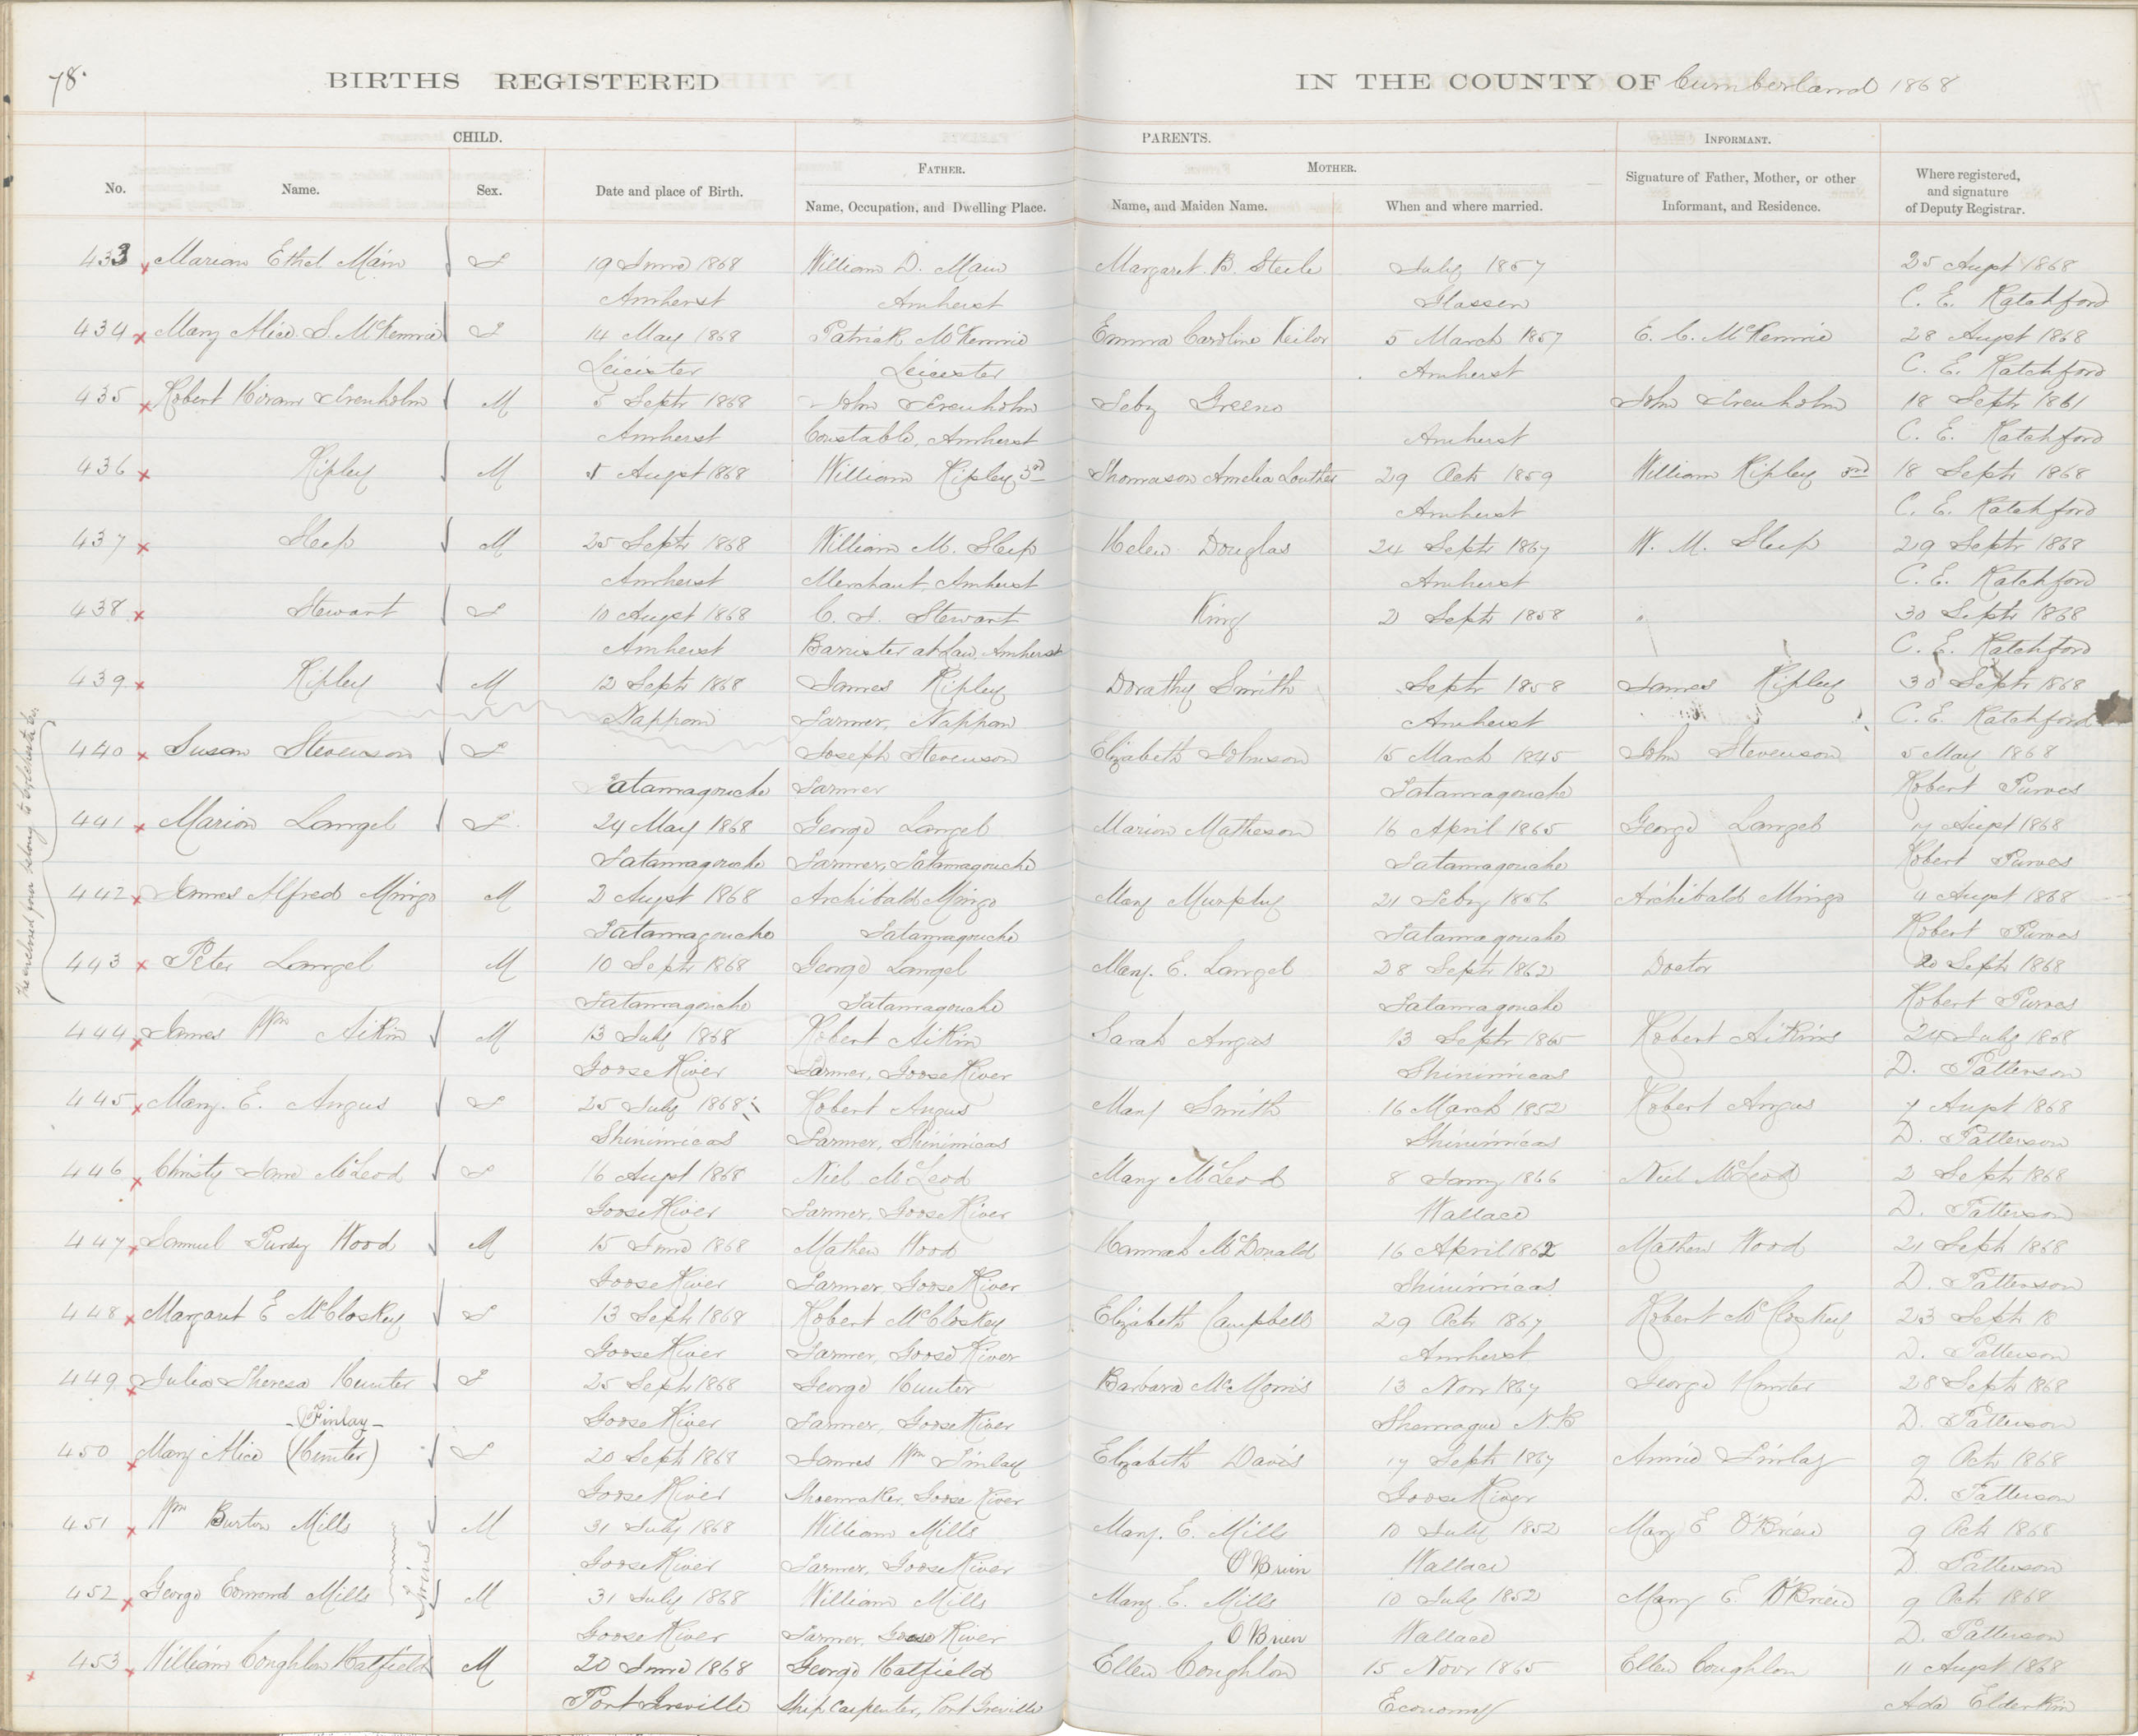 78.
BIRTHS REGISTERED IN THE COUNTY OF Cumberland 1868
CHILD. PARENTS. INFORMANT.
FATHER. MOTHER.
No. Name. Sex. Date and place of Birth. Name, Occupation, and Dwelling Place. Name, and Maiden Name. When and where married. Signature of Father, Mother, or other Informant, and Residence. Where registered, and signature of Deputy Registrar.
433 Marian Ethel Main F 19 June 1868 William D. Main Margaret B. Steele July 1867 25 Augst 1868
Amherst Amherst C. E. Ratchford
434 Mary Alice S. McKennie F 14 May 1868 Patrick McKennie Emma Caroline Keilor 5 March 1857 E. C. McKennie 28 Augst 1868
Leicister Leicester Amherst C. E. Ratchford
435 Robert Hiram Trenholm M 5 Septr 1868 John Trenholm Greeno John Trenholm 18 Septr 1861
Amherst Constable, Amherst Amherst C. E. Ratchford
436 Ripley M 5 Augst 1868 William Ripley 3rd Thomason Amelia Lowther 29 Octr 1859 William Ripley 3rd 18 Septr 1868
Amherst C. E. Ratchford
437 Sleep M 25 Septr 1868 William M. Sleep Helen Douglas 24 Septr 1867 W. M. Sleep 29 Septr 1868
Amherst Merchant, Amherst Amherst C. E. Ratchford
438 Stewart F 10 Augst 1868 C. J. Stewart King 2 Septr 1858 " 30 Septr 1868
Amherst Barrister at Law, Amherst C. E. Ratchford
439 Ripley M 12 Septr 1868 James Ripley Dorathy Smith Septr 1858 James Ripley 30 Septr 1868
Nappan Farmer, Nappan Amherst C. E. Ratchford
The enclosed four belong to Colchester Co.
440 Susan Stevenson F Joseph Stevenson Elizabeth Johnson 15 March 1845 John Stevenson 5 May 1868
Tatamagouche Farmer Tatamagouche Robert Purves
441 Marion Langel F 24 May 1868 George Langel Marion Matheson 16 April 1865 George Langel 17 Augst 1868
Tatamagouche Farmer, Tatamagouche Tatamagouche Robert Purves
442 James Alfred Mingo M 2 Augst 1868 Archibald Mingo Mary Murphy 21 Feby 1856 Archibald Mingo 4 Augst 1868
Tatamagouche Tatamagouche Tatamagouche Robert Purves
443 Peter Langel M 10 Septr 1868 George Langel Mary. E. Langel 28 Septr 1862 Doctor 20 Septr 1868
Tatamagouche Tatamagouche Tatamagouche Robert Purves
444 James Wm Aikin M 13 July 1868 Robert Aikin Sarah Angus 13 Septr 1865 Robert Aikins 24 July 1868
Goose River Farmer, Goose River Shinimicas D. Patterson
445 Mary. E. Angus F 25 July 1868 Robert Angus Mary Smith 16 March 1852 Robert Angus 7 Augst 1868
Shinimicas Farmer, Shinimicas Shinimicas D. Patterson
446 Christy Jane McLeod F 16 Augst 1868 Niel McLeod Mary McLeod 8 Jany 1866 Niel McLeod 2 Septr 1868
Goose River Farmer, Goose River Wallace D. Patterson
447 Samuel Purdy Wood M 15 June 1868 Mathew Wood Hannah McDonald 16 April 1862 Mathew Wood 21 Septr 1868
Goose River Farmer, Goose River Shinimicas D. Patterson
448 Margaret E McCloskey F 13 Septr 1868 Robert McCloskey Elizabeth Campbell 29 Octr 1867 Robert McCloskey 23 Septr 18
Goose River Farmer, Goose River Amherst D. Patterson
449 Julia Theresa Hunter F 25 Septr 1868 George Hunter Barbara McMorris 13 Novr 1867 George Hunter 28 Septr 1868
Finlay Goose River Farmer, Goose River Shemogue N.B D. Patterson
450 Mary Alice (Hunter) F 20 Septr 1868 James Wm Finlay Elizabeth Davis 17 Septr 1867 Annie Finlay 9 Octr 1868
Goose River Shoemaker, Goose River Goose River D. Patterson
451 Wm Burton Mills M 31 July 1868 William Mills Mary. E. Mills 10 July 1852 Mary E O'Brien 9 Octr 1868
Twins Goose River Farmer, Goose River O'Brien Wallace D. Patterson
452 George Edmond Mills M 31 July 1868 William Mills Mary E. Mills 10 July 1852 Mary E. O'Brien 9 Octr 1868
Goose River Farmer, Goose River O'Brien Wallace D. Patterson
453 William Coughlon Hatfield M 20 June 1868 George Hatfield Ellen Coughlon 15 Novr 1865 Ellen Coughlon 11 Augst 1868
Port Greville Ship Carpenter, Port Greville Economy Ada Elderkin